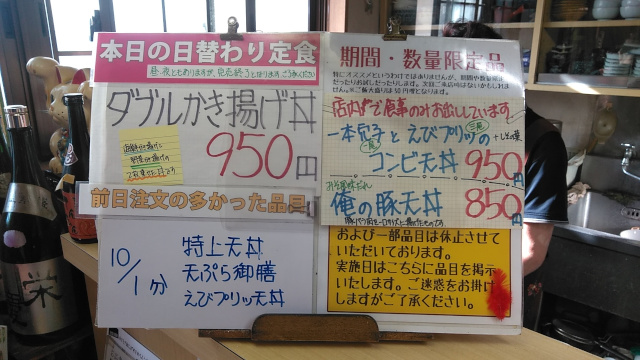 本日の日替わり定食
昼・夜ともありますが、完売終了となります。ご了承ください
ダブルかき揚げ丼
950円
前日注文の多かった品目
10/1分
特上天丼
天ぷら御膳
えびプリッツ天丼
期間・数量限定品
特にオススメというわけではありませんが、期間や数量限定
店内で食事のみお出ししています。
一本穴子とえびプリッツの
コンビ天丼 950円
俺の豚天丼 850円
および一部品目は休止させて
いただいております。
実施日はこちらに品目を掲示
いたします。ご迷惑をお掛け
しますがご了承ください。
栄